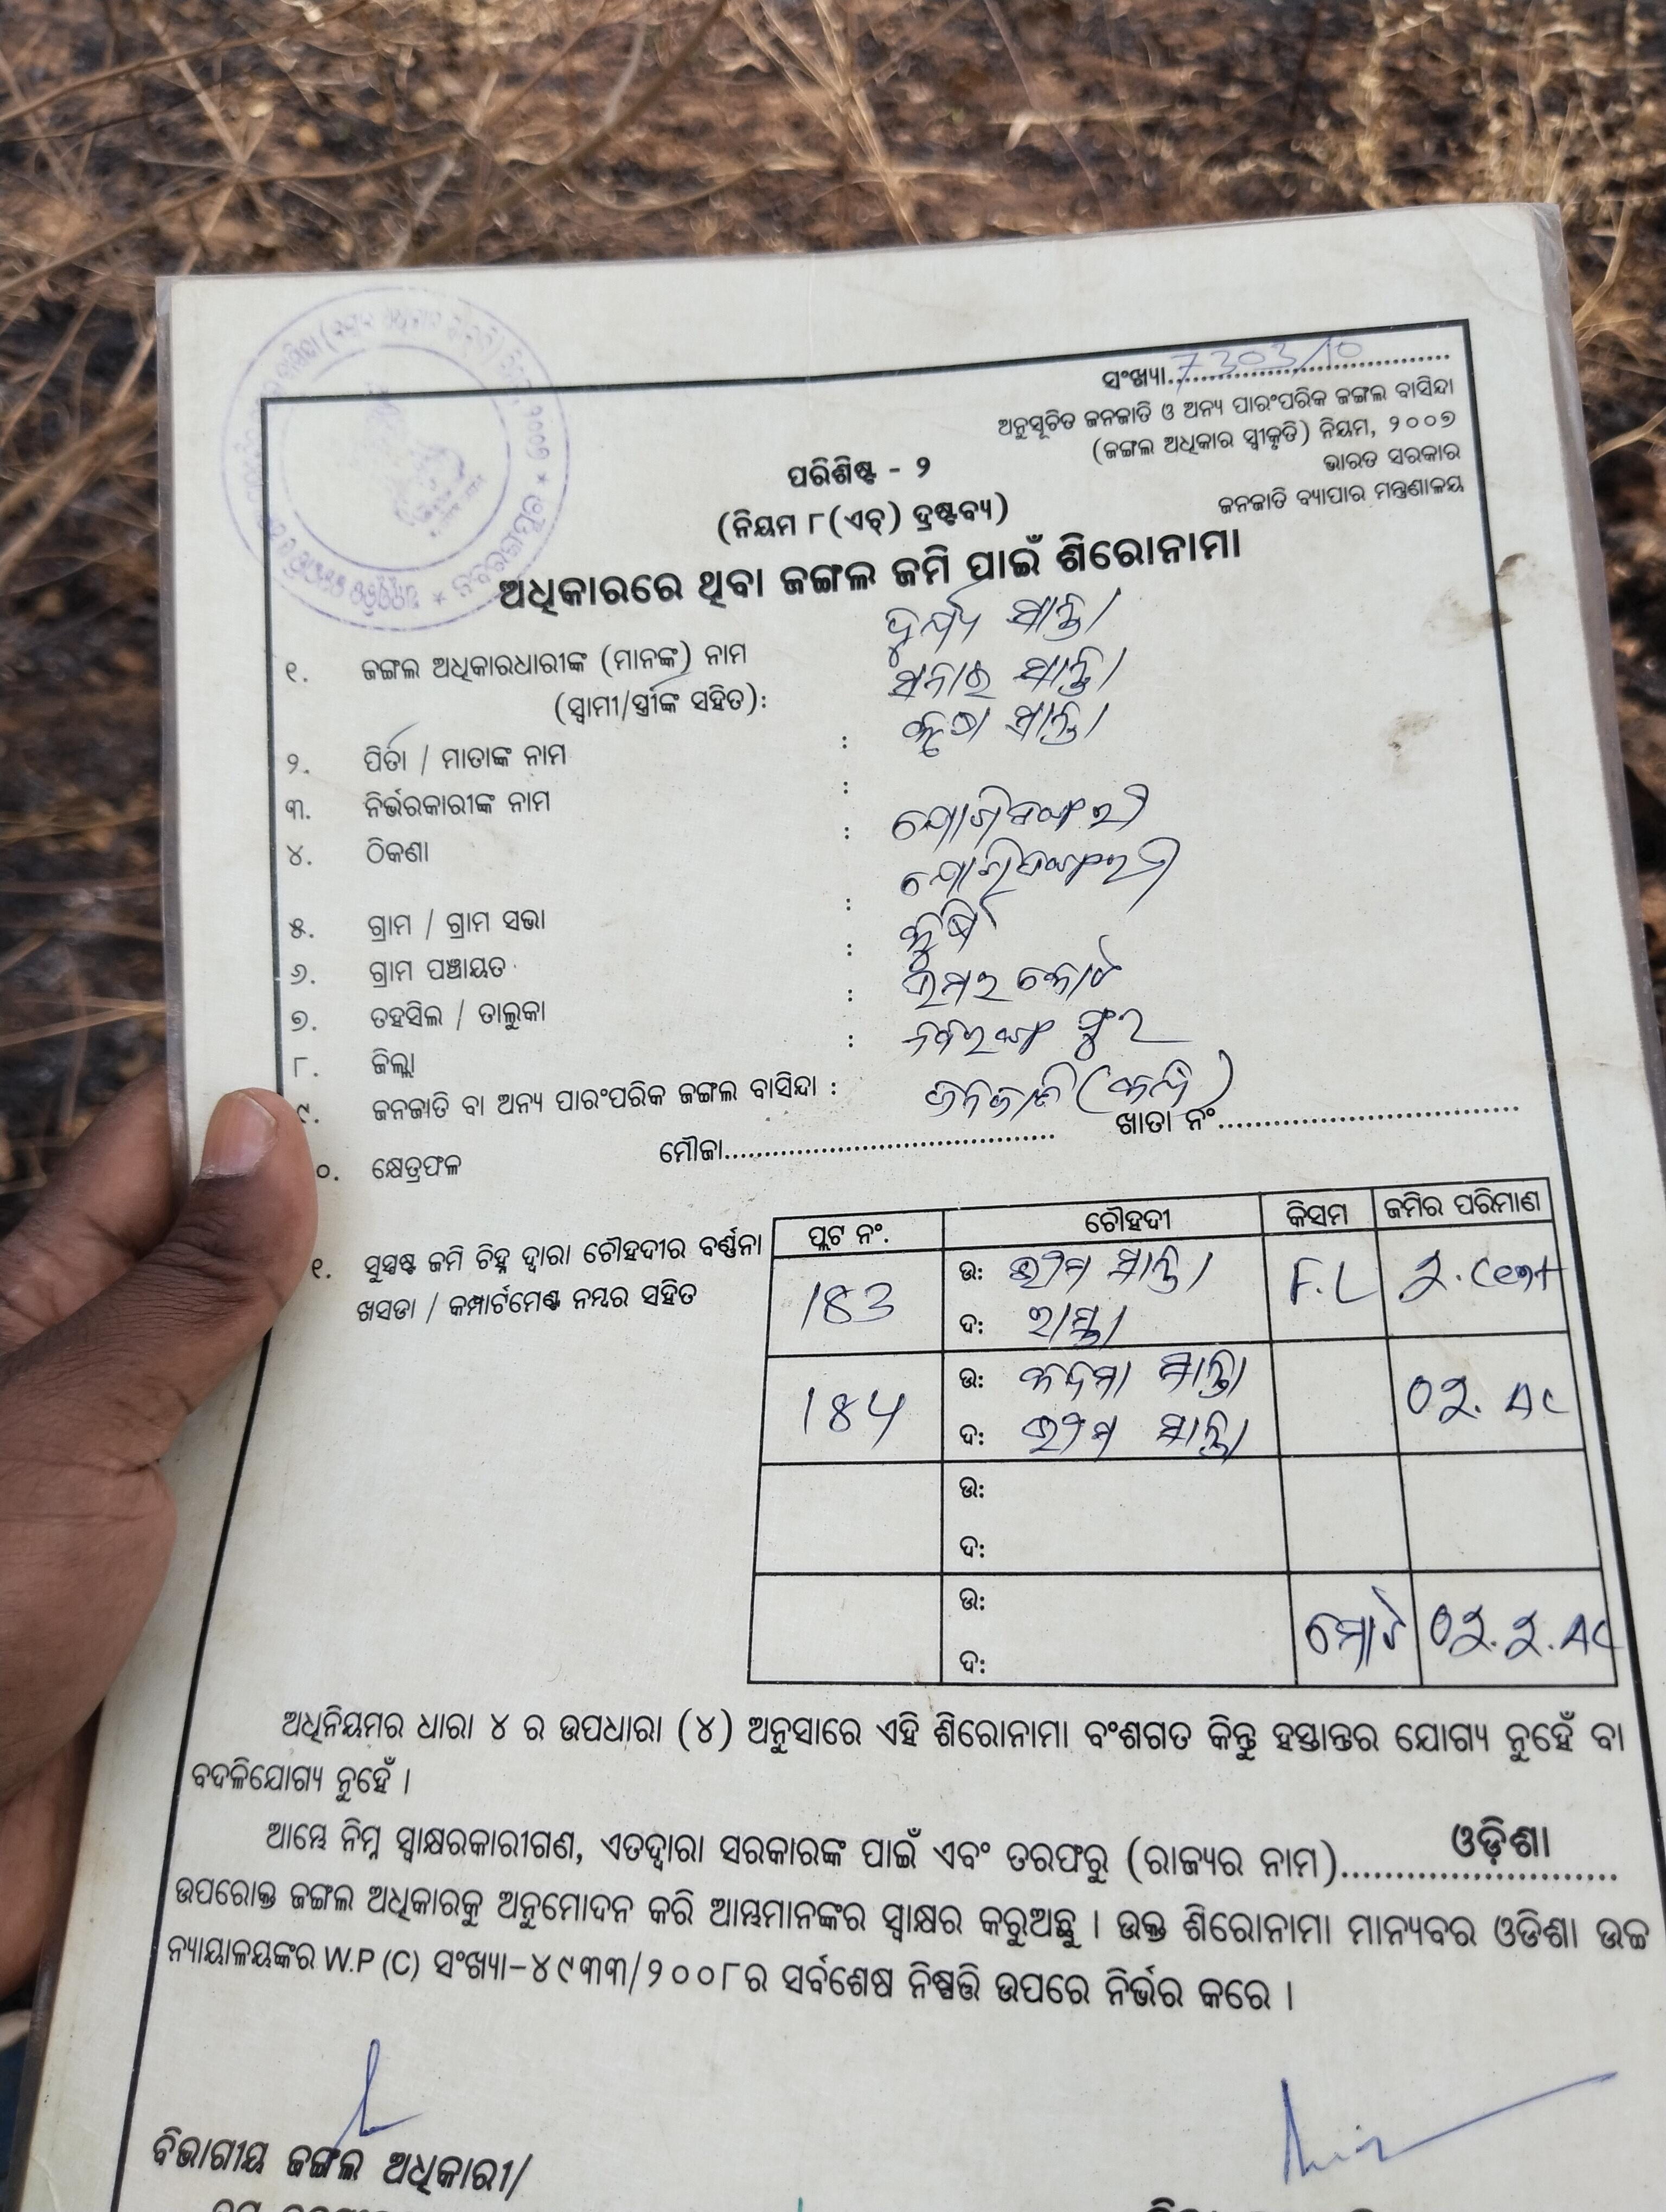 ସଂଖ୍ୟା 7303/10
ଅନୁସୂଚିତ ଜନଜାତି ଓ ଅନ୍ୟ ପାରଂପରିକ ଜଙ୍ଗଲ ବାସିନ୍ଦା
(ଜଙ୍ଗଲ ଅଧିକାର ସ୍ୱୀକୃତି) ନିୟମ, ୨୦୦୭
ଭାରତ ସରକାର
ଜନଜାତି ବ୍ୟାପାର ମନ୍ତ୍ରଣାଳୟ
ପରିଶିଷ୍ଟ - ୨
(ନିୟମ ୮(ଏଚ୍) ଦ୍ରଷ୍ଟବ୍ୟ)
ଅଧିକାରରେ ଥିବା ଜଙ୍ଗଲ ଜମି ପାଇଁ ଶିରୋନାମା
୧. ଜଙ୍ଗଲ ଅଧିକାରଧାରୀଙ୍କ (ମାନଙ୍କ) ନାମ
(ସ୍ୱାମୀ/ସ୍ତ୍ରୀଙ୍କ ସହିତ):
୨. ପିତା / ମାତାଙ୍କ ନାମ :
୩. ନିର୍ଭରକାରୀଙ୍କ ନାମ :
୪. ଠିକଣା :
୫. ଗ୍ରାମ / ଗ୍ରାମ ସଭା :
୬. ଗ୍ରାମ ପଞ୍ଚାୟତ :
୭. ତହସିଲ / ତାଲୁକା : ଉମରକୋଟ
୮. ଜିଲ୍ଲା : ନବରଙ୍ଗପୁର
୯. ଜନଜାତି ବା ଅନ୍ୟ ପାରଂପରିକ ଜଙ୍ଗଲ ବାସିନ୍ଦା : ଜନଜାତି
୦. କ୍ଷେତ୍ରଫଳ ମୌଜା ଖାତା ନଂ
୧. ସୁସ୍ପଷ୍ଟ ଜମି ଚିହ୍ନ ଦ୍ୱାରା ଚୌହଦୀର ବର୍ଣ୍ଣନା
ଖସଡା / କମ୍ପାର୍ଟମେଣ୍ଟ ନମ୍ବର ସହିତ
ପ୍ଲଟ ନଂ. ଚୌହଦୀ କିସମ ଜମିର ପରିମାଣ
183 ଉ: ଭୀମ ସାନ୍ତା F.L 2. Cent
ଦ: ରାସ୍ତା
184 ଉ: କଦମା ସାନ୍ତା 02. AC
ଦ: ଭୀମ ସାନ୍ତା
ଉ:
ଦ:
ଉ: ମୋଟ 02. 2. AC
ଦ:
ଅଧିନିୟମର ଧାରା ୪ ର ଉପଧାରା (୪) ଅନୁସାରେ ଏହି ଶିରୋନାମା ବଂଶଗତ କିନ୍ତୁ ହସ୍ତାନ୍ତର ଯୋଗ୍ୟ ନୁହେଁ ବା
ବଦଳିଯୋଗ୍ୟ ନୁହେଁ ।
ଆମ୍ଭେ ନିମ୍ନ ସ୍ୱାକ୍ଷରକାରୀଗଣ, ଏତଦ୍ୱାରା ସରକାରଙ୍କ ପାଇଁ ଏବଂ ତରଫରୁ (ରାଜ୍ୟର ନାମ) ଓଡ଼ିଶା
ଉପରୋକ୍ତ ଜଙ୍ଗଲ ଅଧିକାରକୁ ଅନୁମୋଦନ କରି ଆମ୍ଭମାନଙ୍କର ସ୍ୱାକ୍ଷର କରୁଅଛୁ । ଉକ୍ତ ଶିରୋନାମା ମାନ୍ୟବର ଓଡିଶା ଉଚ୍ଚ
ନ୍ୟାୟାଳୟଙ୍କର W.P (C) ସଂଖ୍ୟା-୪୯୩୩/୨୦୦୮ର ସର୍ବଶେଷ ନିଷ୍ପତ୍ତି ଉପରେ ନିର୍ଭର କରେ ।
ବିଭାଗୀୟ ଜଙ୍ଗଲ ଅଧିକାରୀ/